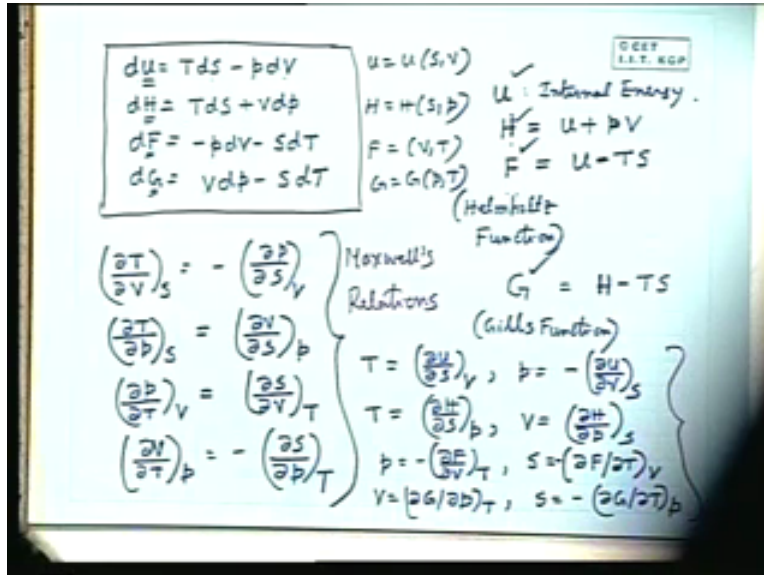 dU = TdS - pdV
dH = TdS + Vdp
dF = -pdV - SdT
dG = Vdp - SdT
U = U(S,V)
H = H(S,p)
F = (V,T)
G = G(p,T)
I.I.T. KGP
U : Internal Energy.
H = U + pV
F = U - TS
(Helmholtz
Function)
G = H - TS
(Gibbs Function)
(∂T/∂V)_S = - (∂p/∂S)_V
(∂T/∂p)_S = (∂V/∂S)_p
(∂p/∂T)_V = (∂S/∂V)_T
(∂V/∂T)_p = - (∂S/∂p)_T
Maxwell's
Relations
T = (∂U/∂S)_V, p = - (∂U/∂V)_S
T = (∂H/∂S)_p, V = (∂H/∂p)_S
p = - (∂F/∂V)_T, S = -(∂F/∂T)_V
V = (∂G/∂p)_T, S = - (∂G/∂T)_p